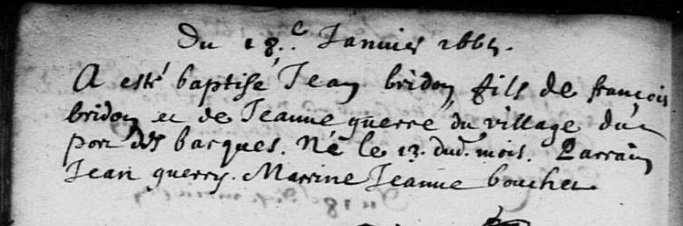 Du 18.e Januier 1665.
A esté baptisé Jean bridon fils de françois
bridon et de Jeanne guerre du village du
port des barques. Né le 13. dud. mois. Parrain
Jean guerry. Marrine Jeanne boucher.